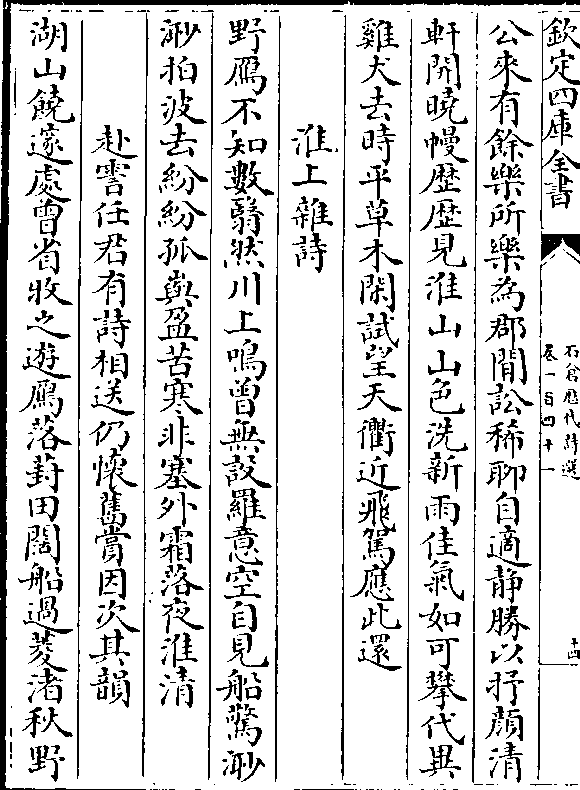 欽定四庫全書
石倉歷代詩選
卷一百四十一
十四
公來有餘樂所樂為郡閒訟稀聊自適静勝以抒顔清
軒開曉幔歴歴見淮山山色洗新雨佳氣如可攀代異
雞犬去時平草木閑試望天衢近飛駕應此還
淮上雜詩
野鴈不知數翳然川上鳴曾無設羅意空自見船驚渺
渺拍波去紛紛孤嶼盈苦寒非塞外霜落夜淮清
赴雩任君有詩相送仍懷舊賞因次其韻
湖山饒邃處曾省牧之遊鴈落葑田闊船過菱渚秋野